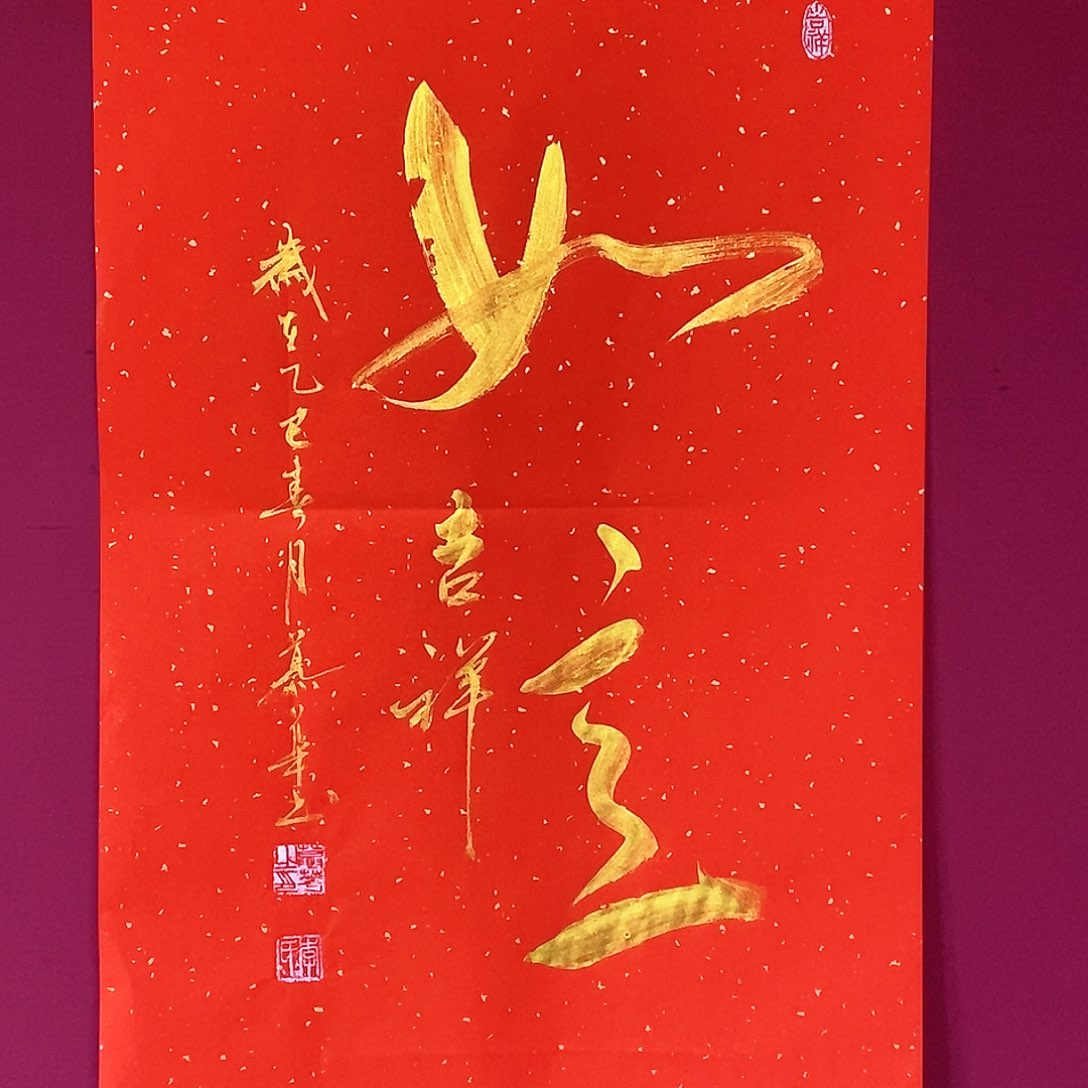 如意
吉祥
歲在乙巳春月慕華书